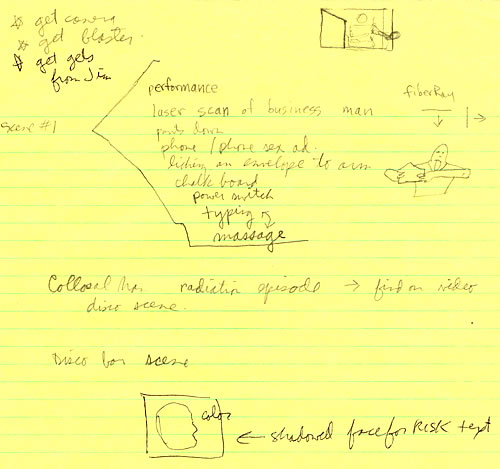 ☆ get camera
☆ get blaster
☆ get gels
from Jim
performance
fiberRay
laser scan of business man
Scene #1
pants down
phone / phone sex ad.
licking an envelope to arm
chalk board
power switch
typing of
massage
Collosal man radiation episode → find on video
disco scene.
Disco bar scene
color
← shadowed face for RISK text